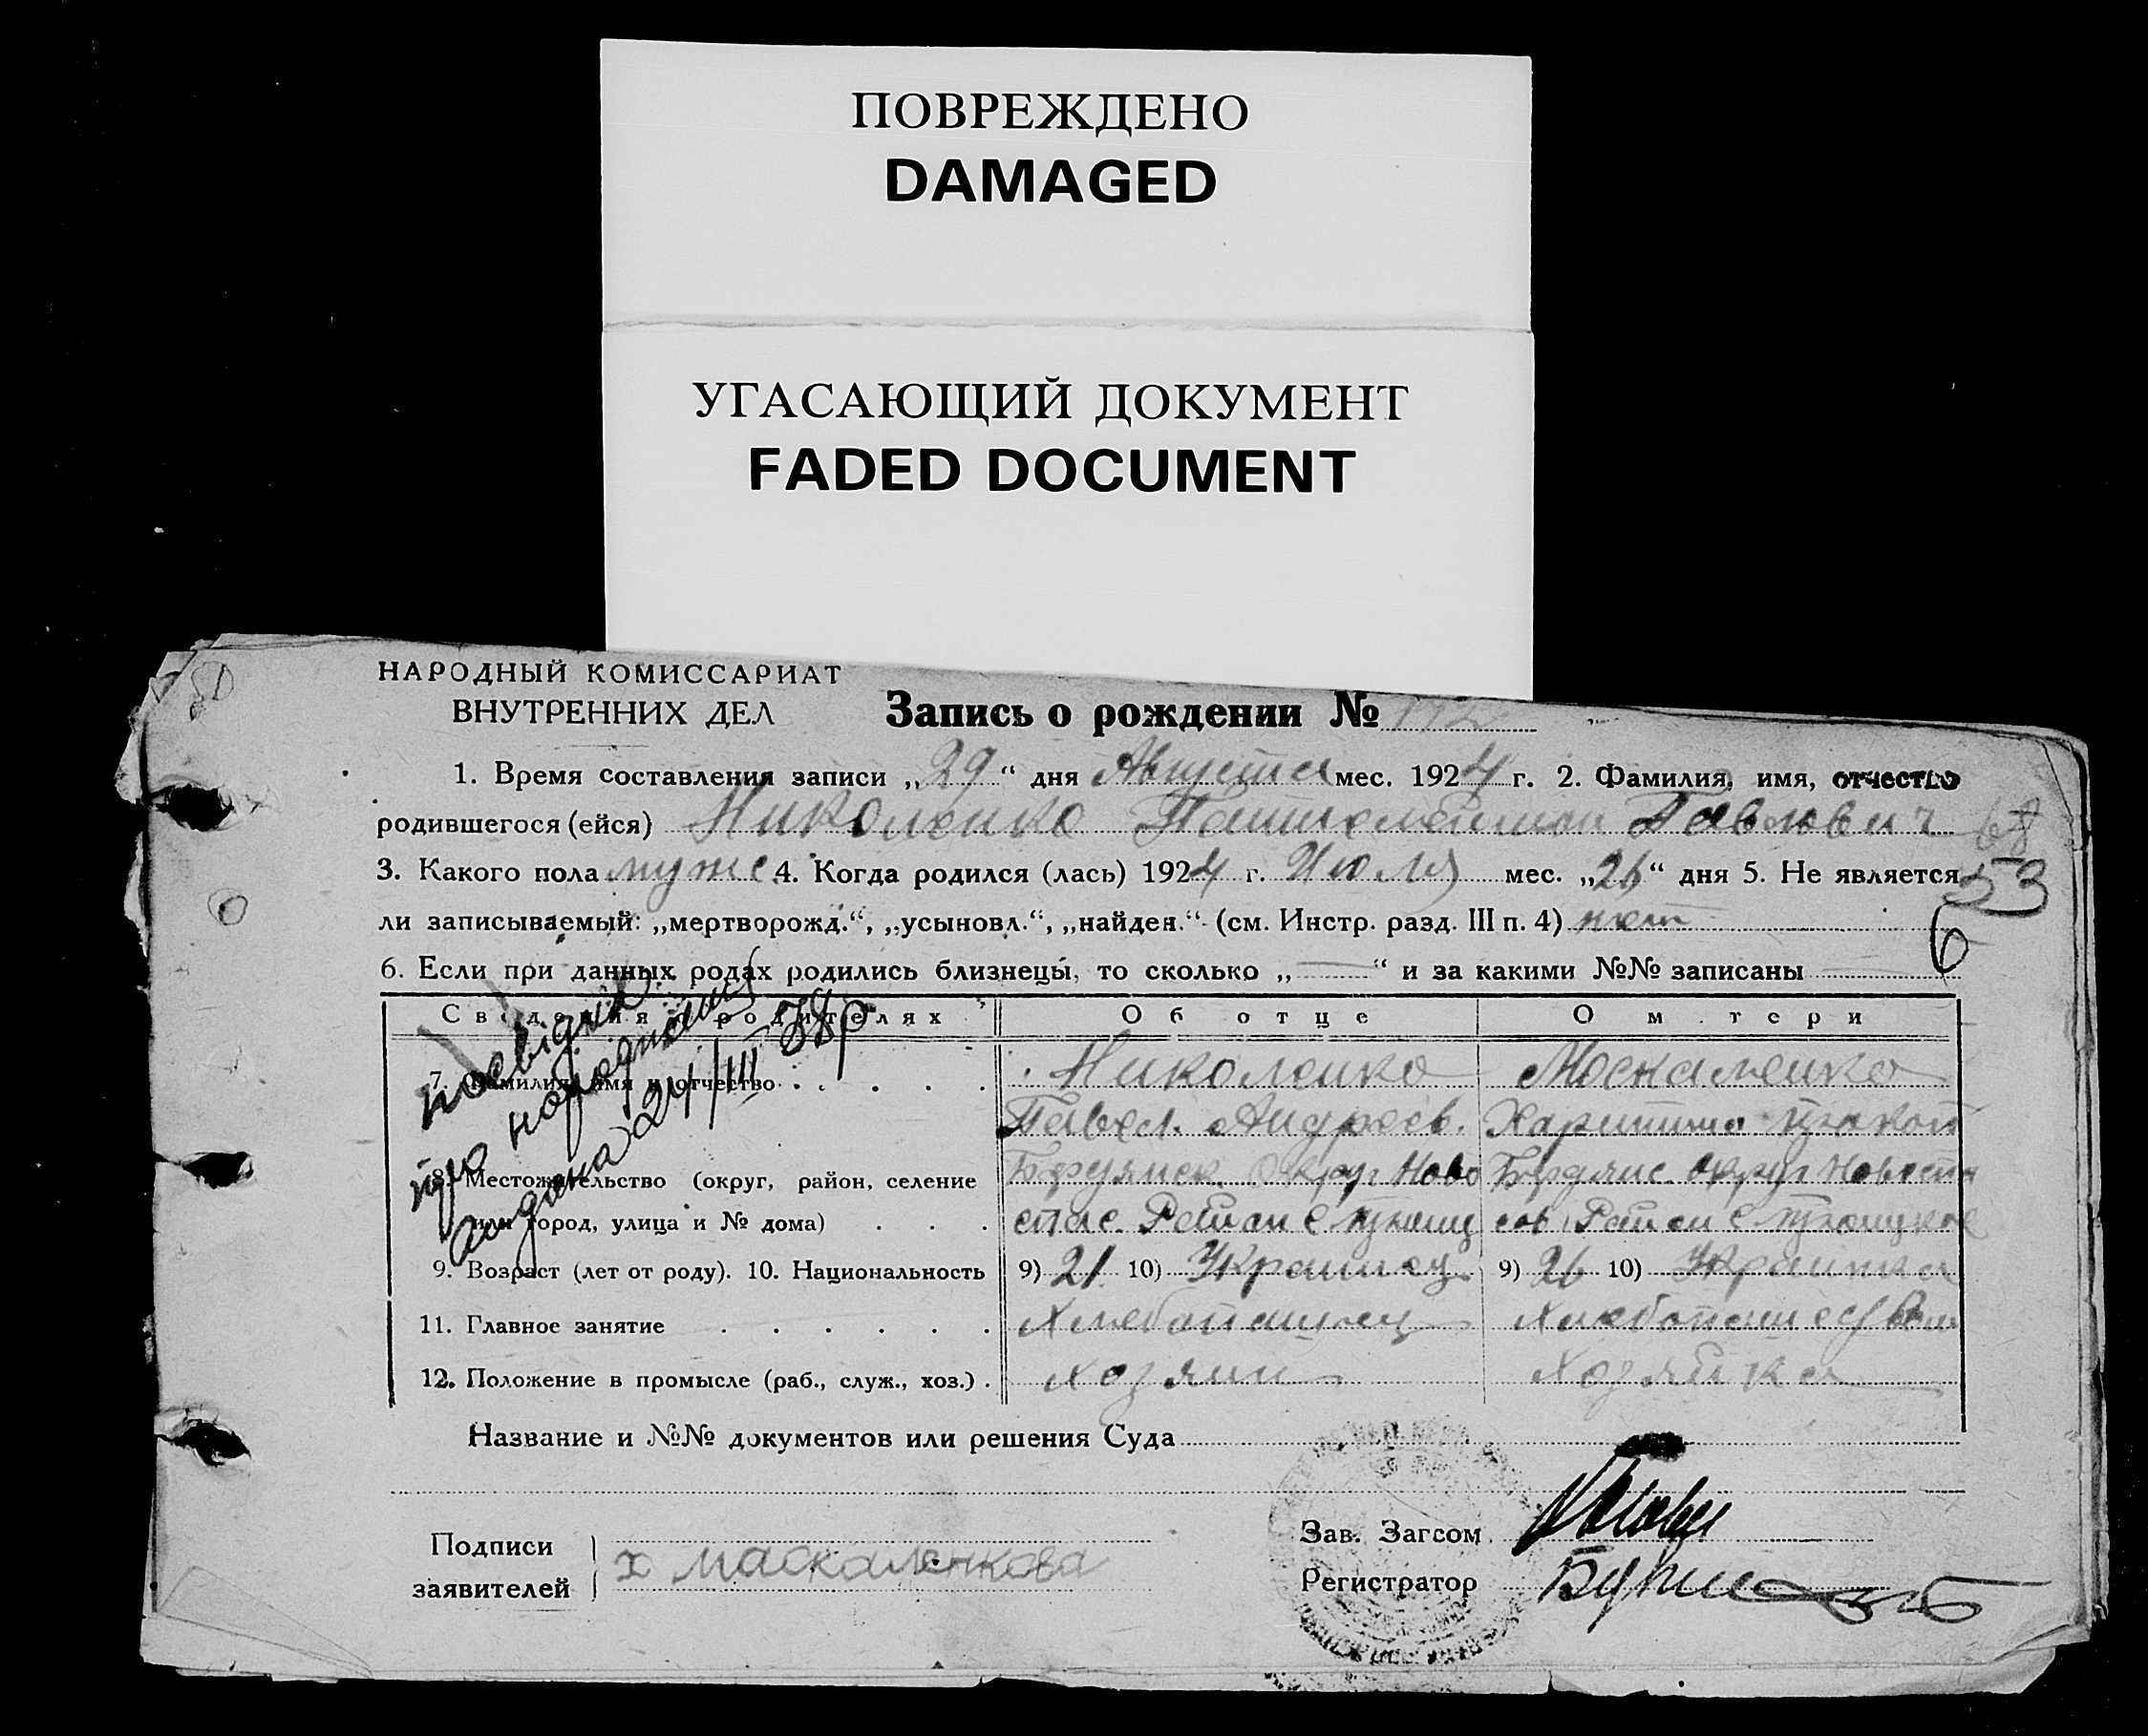 ПОВРЕЖДЕНО
DAMAGED
УГАСАЮЩИЙ ДОКУМЕНТ
FADED DOCUMENT
НАРОДНЫЙ КОМИССАРИАТ
ВНУТРЕННИХ ДЕЛ
Запись о рождении №
1. Время составления записи „29“ дня Августа мес. 1924 г. 2. Фамилия, имя, отчество
родившегося (ейся) Николенко Павлович
53
3. Какого пола мужс 4. Когда родился (лась) 1924 г. Июля мес. „26“ дня 5. Не является
ли записываемый: „мертворожд.“, „усыновл.“, „найден.“ (см. Инстр. разд. III п. 4) нет
6
6. Если при данных родах родились близнецы, то сколько „—“ и за какими №№ записаны —
Сведения о родителях Об отце О м тери
7. Фамилия, имя и отчество Николенко Москаленко
Павел. Андреев. Харитина
8. Местожительство (округ, район, селение Бердянск. Округ Ново Бердянс. округ Новоспа
или город, улица и № дома) спас. Район с Район с
9. Возраст (лет от роду). 10. Национальность 9) 21 10) Украинец 9) 26 10) Украинка
11. Главное занятие Хлебопашец
12. Положение в промысле (раб., служ., хоз.) хозяин хозяйка
посвідка
про народження
видана 24/III 38р
Название и №№ документов или решения Суда
Подписи
заявителей
х маскаленкова
Зав. Загсом
Регистратор